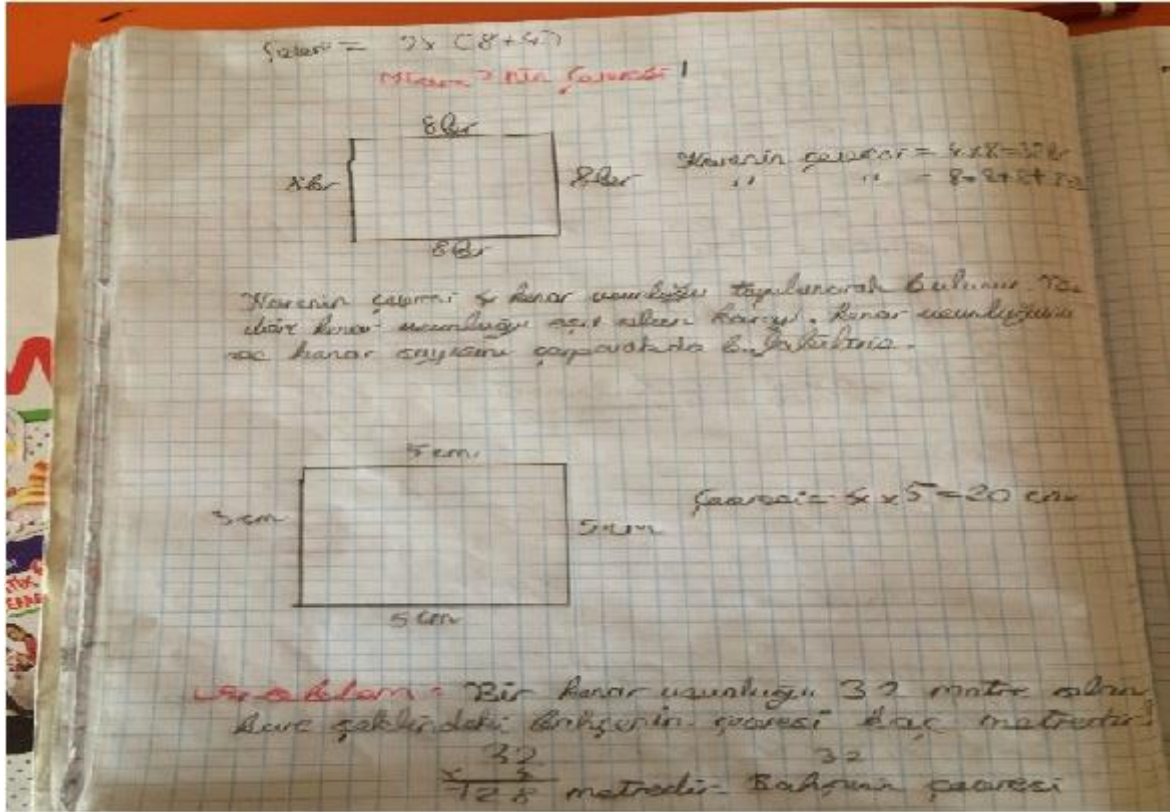 = 2x (8+4)
8br
8br
8br
Karenin çevresi = 4x8=32br
" " = 8+8+8+8=
8br
Karenin çevresi 4 kenar uzunluğu toplanarak bulunur. Ya
kenar uzunluğu eşit olan kenar uzunluğunu
kenar sayısını çarparakta bulabiliriz.
5 cm
5 cm
5 cm
Çevresi = 4 x 5 = 20 cm
5 cm
Bir kenar uzunluğu 32 metre olan
kare şeklindeki bahçenin çevresi kaç metredir?
32
32
x 4
128 metredir = Bahçenin çevresi